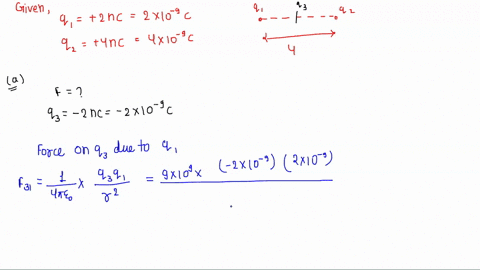 Given,
q₁ = +2nc = 2×10⁻⁹ c
q₂ = +4nc = 4×10⁻⁹ c
q₁ q₃ q₂
4
(a)
F = ?
q₃ = -2nc = -2×10⁻⁹ c
Force on q₃ due to q₁
F₃₁ = 1/4πε₀ × q₃q₁/r² = 9×10⁹ × (-2×10⁻⁹) (2×10⁻⁹)